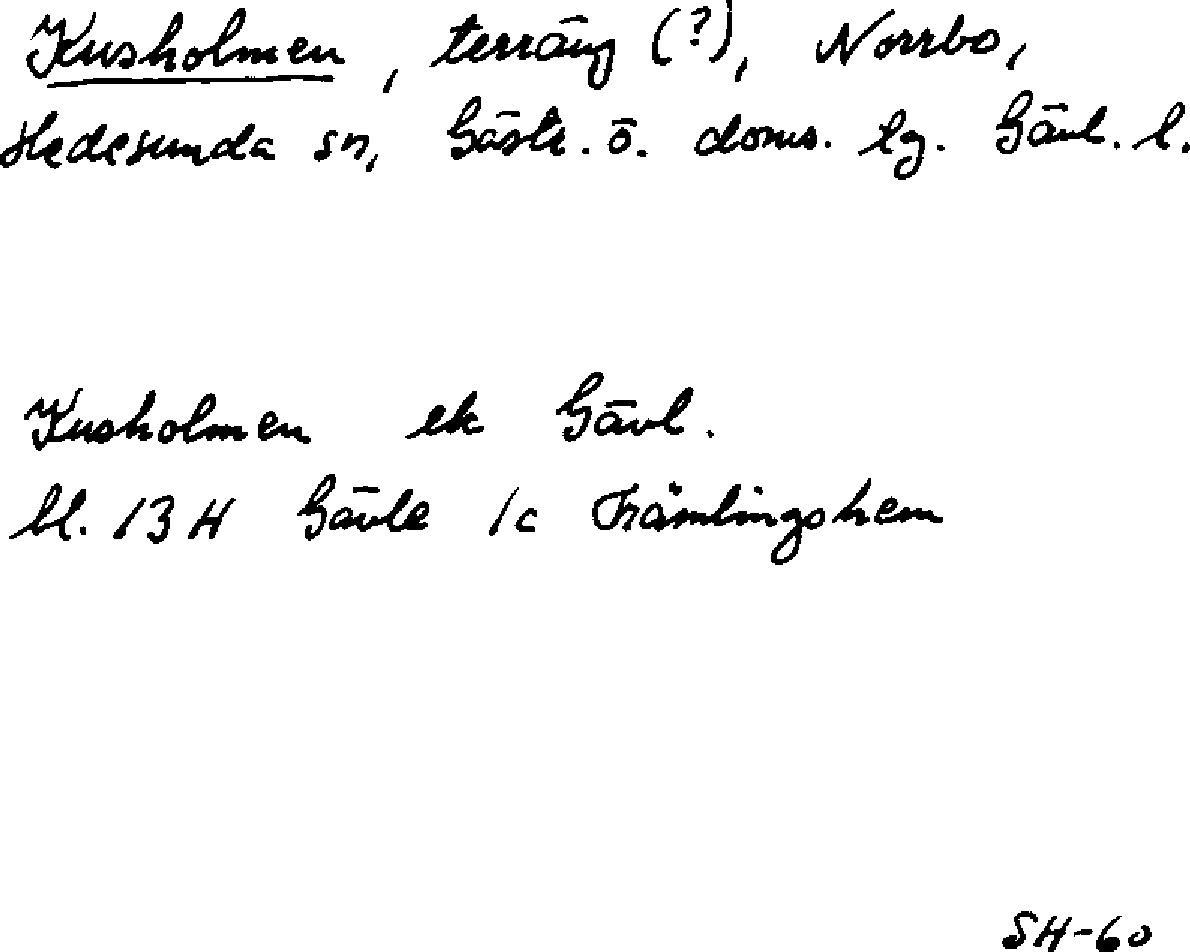 Kusholmen, terräng (?), Norrbo,
Hedesunda sn, Gästr. ö. doms. lg. Gävl. l.
Kusholmen ek Gävl.
bl. 13 H Gävle 1c Främlingshem
SH-60